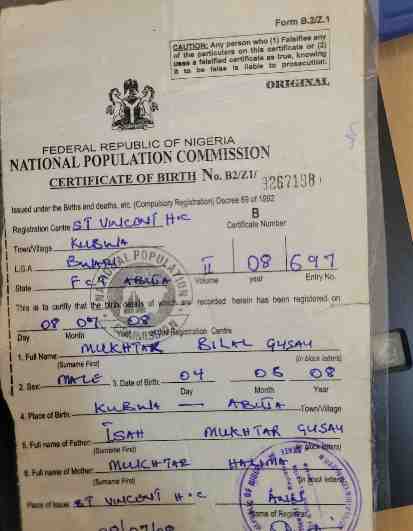 Form B.2/Z.1
CAUTION: Any person who (1) Falsifies any
of the particulars on this certificate or (2)
uses a falsified certificate as true, knowing
it to be false is liable to prosecution.
ORIGINAL
FEDERAL REPUBLIC OF NIGERIA
NATIONAL POPULATION COMMISSION
CERTIFICATE OF BIRTH No. B2/Z1/ 3267198
Issued under the Births and deaths, etc. (Compulsory Registration) Decree 69 of 1992
B
Registration Centre ST VINCENT H.C Certificate Number
Town/Village KUBWA
L.G.A BWARI II 08 697
State FCT ABUJA Volume year Entry No.
This is to certify that the birth details of which are recorded herein has been registered on
08 07 08
Day Month Year at the Registration Centre
1. Full Name: MUKHTAR BILAL GUSAU
(Surname First) (in block letters)
2. Sex: MALE 3. Date of Birth: 04 06 08
Day Month Year
4. Place of Birth: KUBWA — ABUJA Town/Village
5. Full name of Father: ISAH MUKHTAR GUSAU
(Surname First) (in block letters)
6. Full name of Mother: MUKHTAR
(Surname First) (in block letters)
Place of Issue: ST VINCENT H.C
Name of Registrar